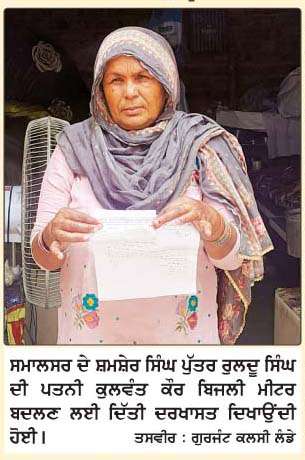 ਸਮਾਲਸਰ ਦੇ ਸ਼ਮਸ਼ੇਰ ਸਿੰਘ ਪੁੱਤਰ ਰੁਲਦੂ ਸਿੰਘ
ਦੀ ਪਤਨੀ ਕੁਲਵੰਤ ਕੌਰ ਬਿਜਲੀ ਮੀਟਰ
ਬਦਲਣ ਲਈ ਦਿੱਤੀ ਦਰਖਾਸਤ ਦਿਖਾਉਂਦੀ
ਹੋਈ। ਤਸਵੀਰ : ਗੁਰਜੰਟ ਕਲਸੀ ਲੰਡੇ